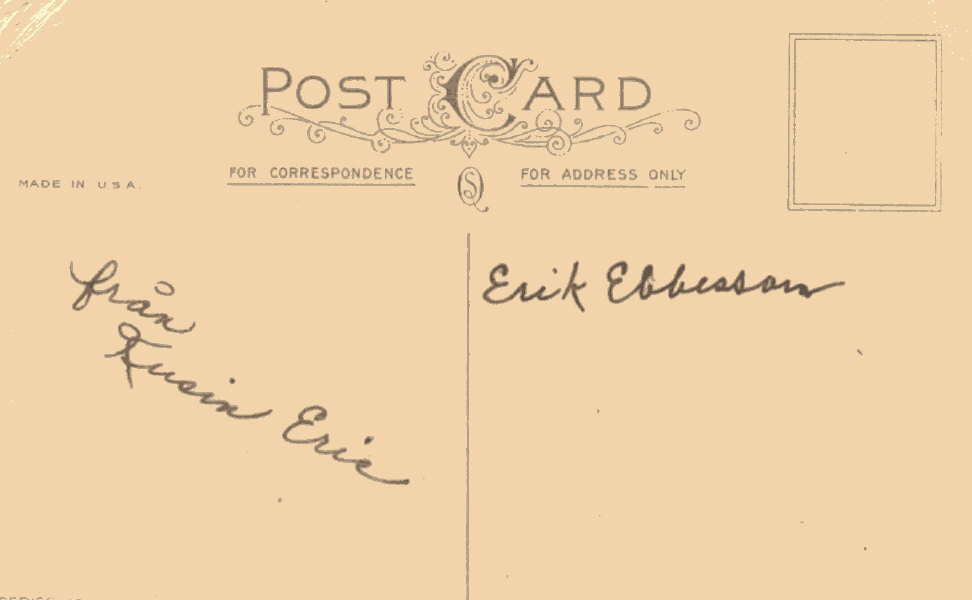 POST CARD
FOR CORRESPONDENCE
FOR ADDRESS ONLY
MADE IN U.S.A.
från
Kusin Eric
Erik Ebbesson